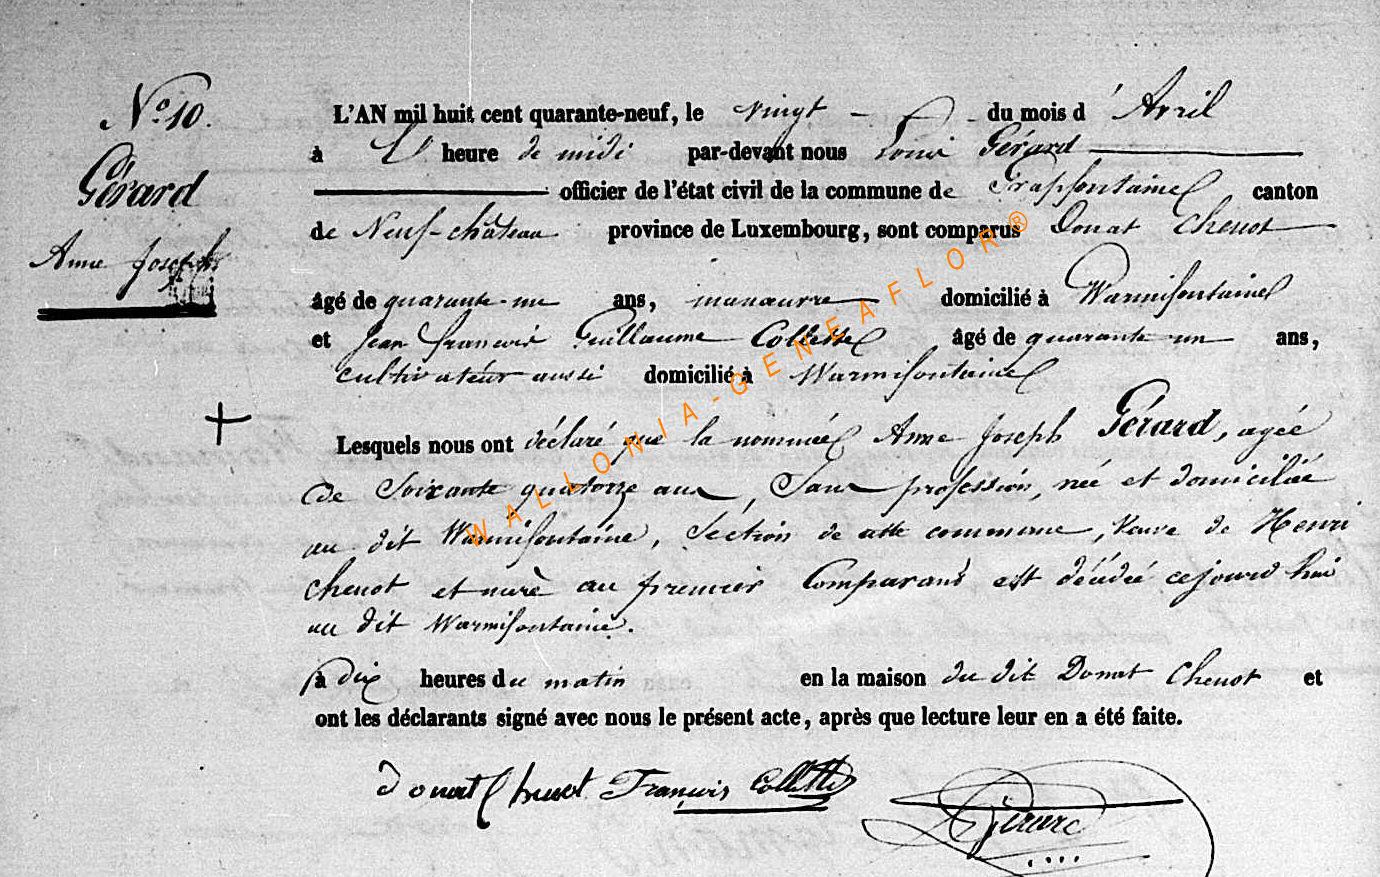 No. 10.
Gérard
Anne Joseph
L'AN mil huit cent quarante-neuf, le vingt du mois d'Avril
à heure de midi par-devant nous Louis Gérard
officier de l'état civil de la commune de Grapfontaine canton
de Neuf-château province de Luxembourg, sont comparus Donat Chenot
âgé de quarante-un ans, manœuvre domicilié à Warmifontaine
et Jean François Guillaume Collette âgé de quarante un ans,
cultivateur aussi domicilié à Warmifontaine
Lesquels nous ont déclaré que la nommée Anne Joseph Gérard, agée
de Soixante quatorze ans, Sans profession, née et domiciliée
au dit Warmifontaine, Section de cette commune, Veuve de Henri
chenot et mère au premier Comparant est décédée cejourd'hui
au dit Warmifontaine.
à dix heures du matin en la maison du dit Donat Chenot et
ont les déclarants signé avec nous le présent acte, après que lecture leur en a été faite.
donat Chenot François Collette Gérard
WALLONIA-GENEAFLOR®